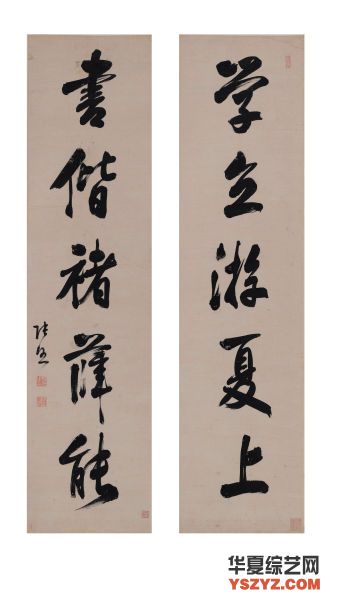 学立游夏上
書偕褚薛能
張照
华夏综艺网
YSZYZ.COM